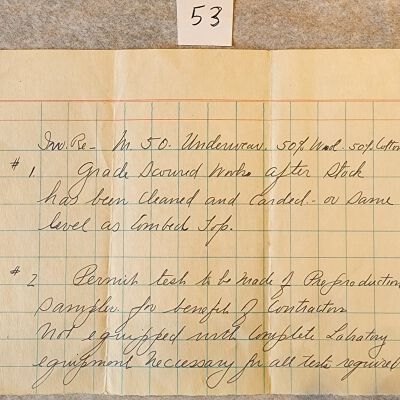 53
Inv. Re- M 50. Underwear. 50% Wool. 50% Cotton
#1. Grade Scoured Wools after Stock
has been Cleaned and Carded - or Same
level as Combed Top.
#2 Permit test to be made of Preproduction
Samples for benefit of Contractors
Not equipped with Complete Labratory
equipment Neccessary for all tests required